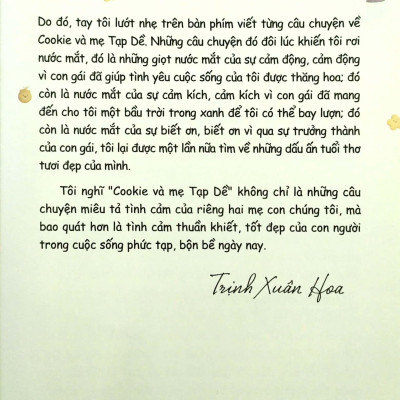 Do đó, tay tôi lướt nhẹ trên bàn phím viết từng câu chuyện về
Cookie và mẹ Tạp Dề. Những câu chuyện đó đôi lúc khiến tôi rơi
nước mắt, đó là những giọt nước mắt của sự cảm động, cảm động
vì con gái đã giúp tình yêu cuộc sống của tôi được thăng hoa; đó
còn là nước mắt của sự cảm kích, cảm kích vì con gái đã mang
đến cho tôi một bầu trời trong xanh để tôi có thể bay lượn; đó
còn là nước mắt của sự biết ơn, biết ơn vì qua sự trưởng thành
của con gái, tôi lại được một lần nữa tìm về những dấu ấn tuổi thơ
tươi đẹp của mình.
Tôi nghĩ "Cookie và mẹ Tạp Dề" không chỉ là những câu
chuyện miêu tả tình cảm của riêng hai mẹ con chúng tôi, mà
bao quát hơn là tình cảm thuần khiết, tốt đẹp của con người
trong cuộc sống phức tạp, bộn bề ngày nay.
Trịnh Xuân Hoa